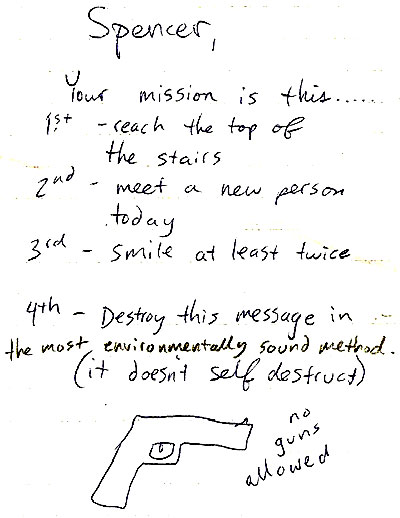 Spencer,
Your mission is this......
1st - reach the top of
the stairs
2nd - meet a new person
today
3rd - smile at least twice
4th - Destroy this message in
the most environmentally sound method.
(it doesn't self destruct)
no
guns
allowed